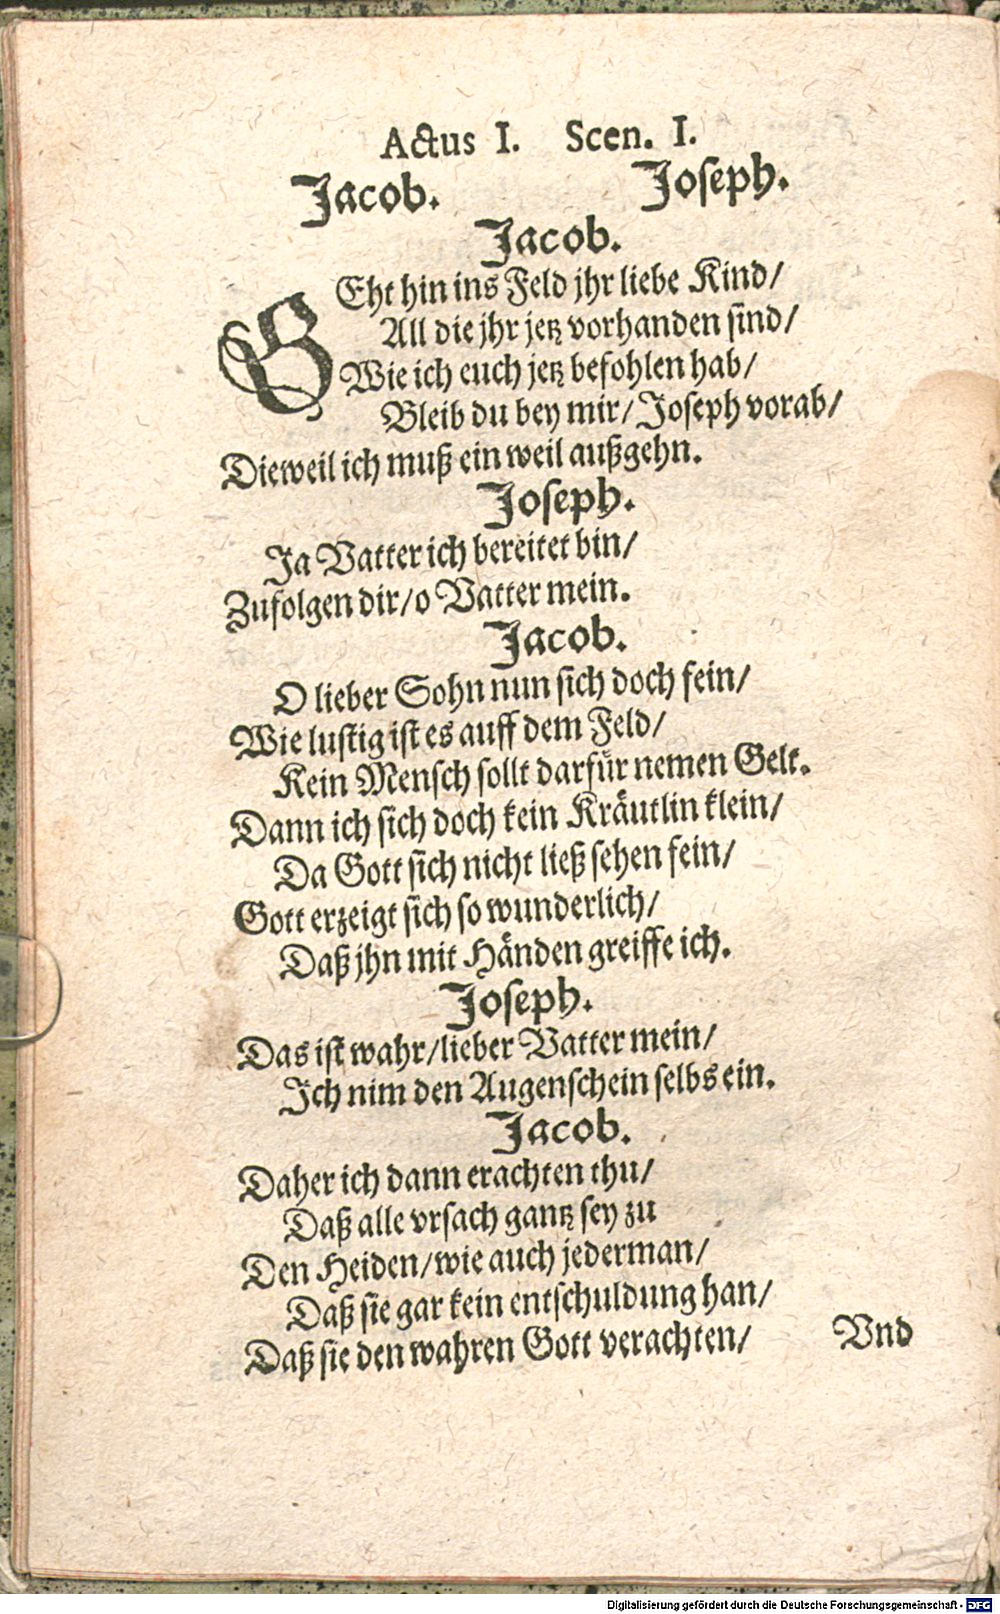 Actus I. Scen. I.
Jacob. Joseph.
Jacob.
GEht hin ins Feld jhr liebe Kind/
All die jhr jetz vorhanden sind/
Wie ich euch jetz befohlen hab/
Bleib du bey mir/ Joseph vorab/
Dieweil ich muß ein weil außgehn.
Joseph.
Ja Vatter ich bereitet bin/
Zufolgen dir/ o Vatter mein.
Jacob.
O lieber Sohn nun sich doch fein/
Wie lustig ist es auff dem Feld/
Kein Mensch sollt darfür nemen Gelt.
Dann ich sich doch kein Kräutlin klein/
Da Gott sich nicht ließ sehen fein/
Gott erzeigt sich so wunderlich/
Daß jhn mit Händen greiffe ich.
Joseph.
Das ist wahr/ lieber Vatter mein/
Ich nim den Augenschein selbs ein.
Jacob.
Daher ich dann erachten thu/
Daß alle vrsach gantz sey zu
Den Heiden/ wie auch jederman/
Daß sie gar kein entschuldung han/
Daß sie den wahren Gott verachten/
Vnd
Digitalisierung gefördert durch die Deutsche Forschungsgemeinschaft - DFG